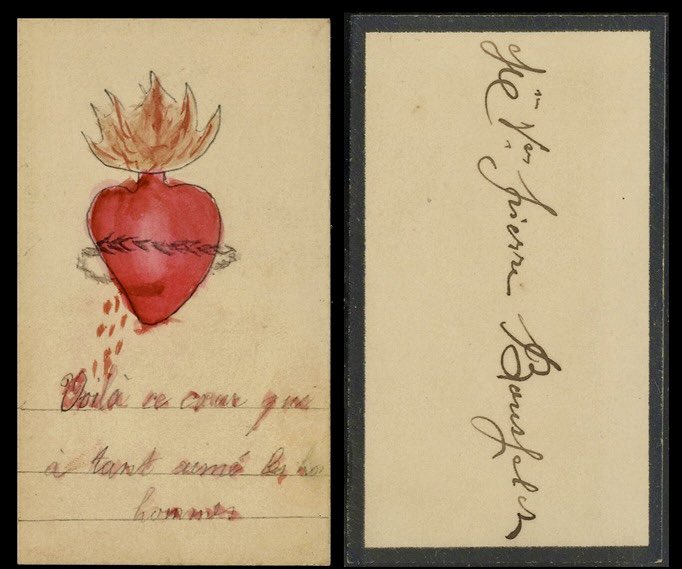 Voilà ce cœur qui
à tant aimé les ho
hommes
Mme Vve Pierre Bousfelet